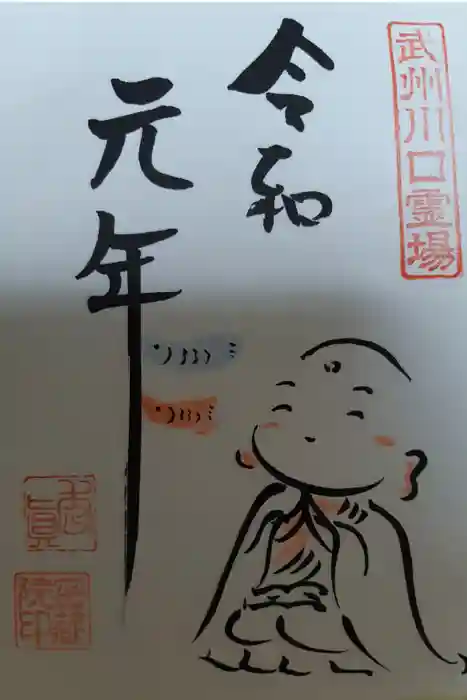 武州川口霊場
令和
元年